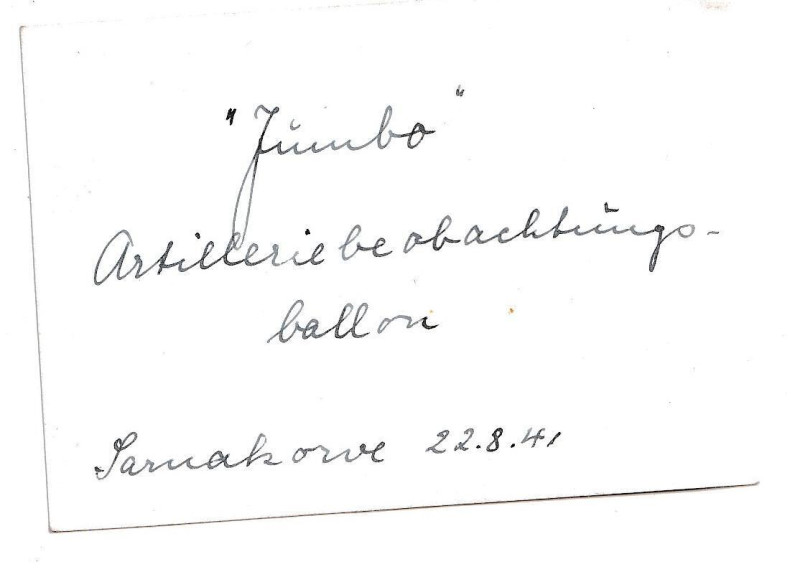 "Jumbo"
Artilleriebeobachtungs-
ballon
Sarnakorve 22.8.41